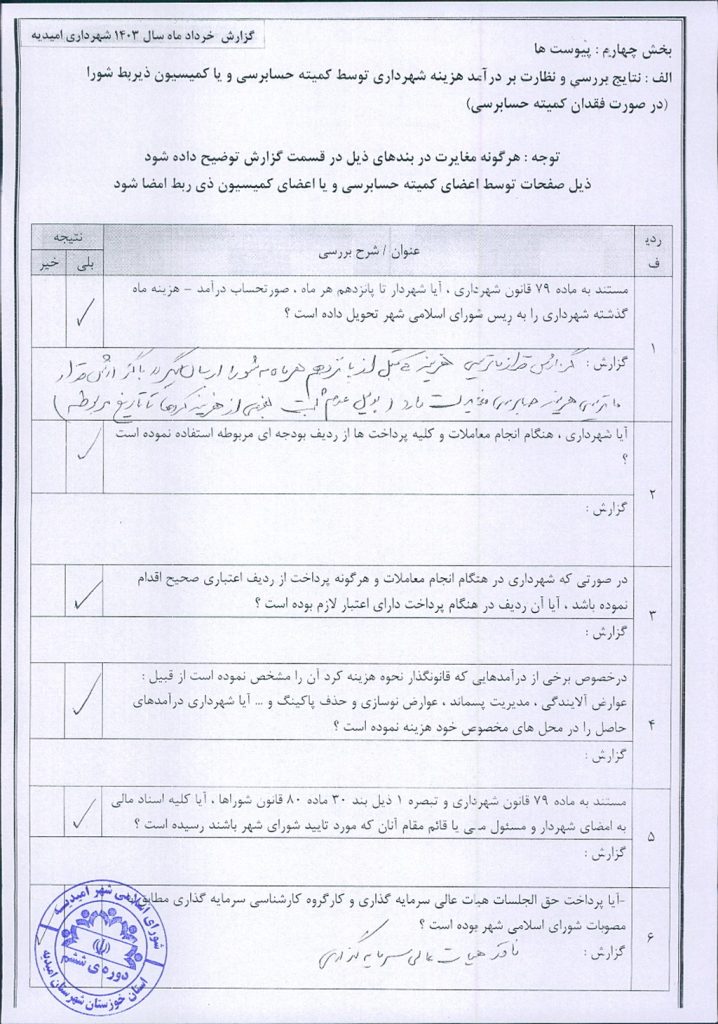 گزارش خرداد ماه سال ۱۴۰۳ شهرداری امیدیه
بخش چهارم : پیوست ها
الف : نتایج بررسی و نظارت بر درآمد هزینه شهرداری توسط کمیته حسابرسی و یا کمیسیون ذیربط شورا
(در صورت فقدان کمیته حسابرسی)
توجه : هرگونه مغایرت در بندهای ذیل در قسمت گزارش توضیح داده شود
ذیل صفحات توسط اعضای کمیته حسابرسی و یا اعضای کمیسیون ذی ربط امضا شود
ردیف
عنوان / شرح بررسی
نتیجه
بلی
خیر
۱
مستند به ماده ۷۹ قانون شهرداری ، آیا شهردار تا پانزدهم هر ماه ، صورتحساب درآمد - هزینه ماه
گذشته شهرداری را به ریس شورای اسلامی شهر تحویل داده است ؟
✓
گزارش : گزارش تراز ماتریسی هزینه قبل از پانزدهم هر ماه به شورا ارسال
ماتریسی هزینه حسابرسی مغایرت دارد ( بدلیل عدم ثبت بعضی از هزینه کردها تا تاریخ مربوطه )
۲
آیا شهرداری ، هنگام انجام معاملات و کلیه پرداخت ها از ردیف بودجه ای مربوطه استفاده نموده است
؟
✓
گزارش :
۳
در صورتی که شهرداری در هنگام انجام معاملات و هرگونه پرداخت از ردیف اعتباری صحیح اقدام
نموده باشد ، آیا آن ردیف در هنگام پرداخت دارای اعتبار لازم بوده است ؟
✓
گزارش :
۴
درخصوص برخی از درآمدهایی که قانونگذار نحوه هزینه کرد آن را مشخص نموده است از قبیل :
عوارض آلایندگی ، مدیریت پسماند ، عوارض نوسازی و حذف پاکینگ و ... آیا شهرداری درآمدهای
حاصل را در محل های مخصوص خود هزینه نموده است ؟
✓
گزارش :
۵
مستند به ماده ۷۹ قانون شهرداری و تبصره ۱ ذیل بند ۳۰ ماده ۸۰ قانون شوراها ، آیا کلیه اسناد مالی
به امضای شهردار و مسئول مـی یا قائم مقام آنان که مورد تایید شورای شهر باشند رسیده است ؟
✓
گزارش :
۶
-آیا پرداخت حق الجلسات هیات عالی سرمایه گذاری و کارگروه کارشناسی سرمایه گذاری مطابق با
مصوبات شورای اسلامی شهر بوده است ؟
گزارش : فاقد هیات عالی سرمایه گذاری
شورای اسلامی شهر امیدیه
دوره ی ششم
استان خوزستان شهرستان امیدیه